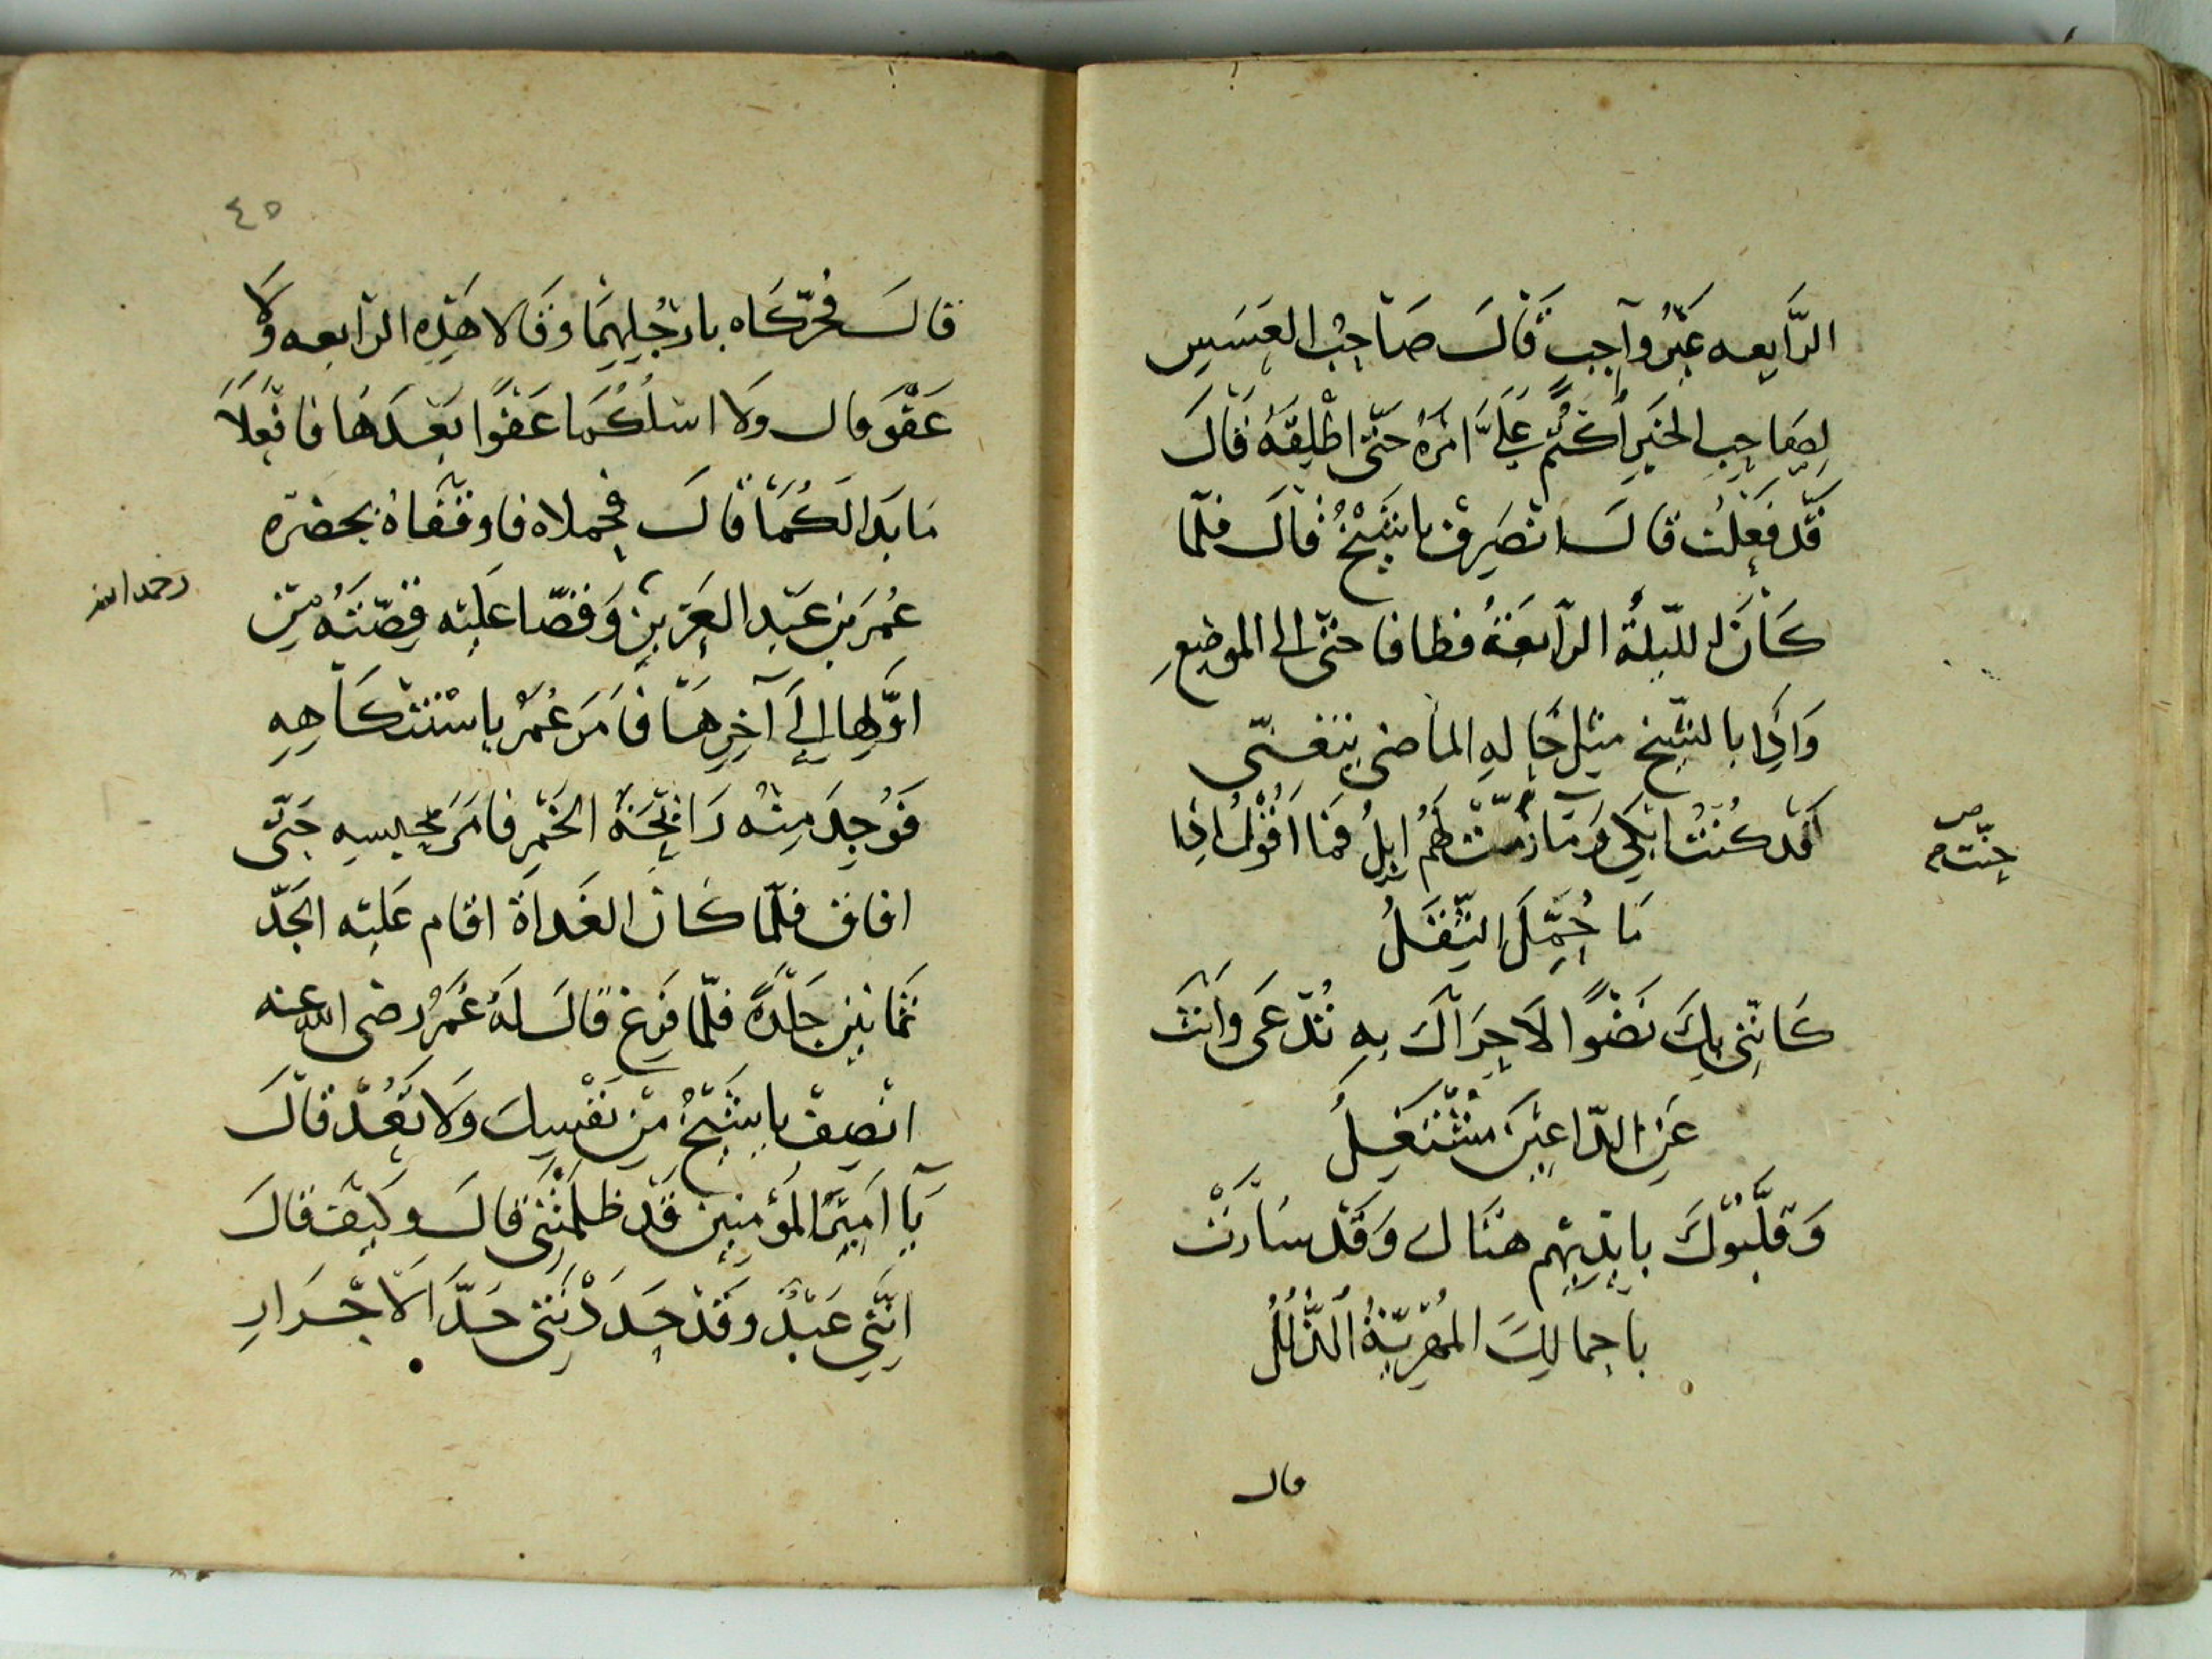 الرَّابعه غَيرُ وآجبٍ قَالَ صَاحِبُ العَسَسِ
لِصَاحِبِ الخَبَرِ أكتُمْ عَلَيَّ امْرَهُ حَتّى اطْلِقَهُ قَالَ
قَد فَعَلْتُ قالَ انصَرِفْ ياشَيْخُ قالَ فلمّا
كَانَ اللّيلَةُ الرّابعَةُ فطافا حتّى الى الموضِعِ
وَاذِا بالشّيخ مثِل حَالهِ الماضى يتغنّى
قَد كُنْتُ ابْكى وَمَا زمّتْ لَهُم ابِلُ فمَا اقُوْلُ اذِا
جنّت م
مَا حُمِّلَ الثِّقَلُ
كَانّنِى بِكَ نَضْوًا لاَحِرَاكَ بِهِ تُدْعَى وانْتَ
عَنِ الدّاعِينَ مُشْتَغِلُ
وَقلَّبُوْكَ بايْدِيْهِم هنَاك وَقَد سارَتْ
باجمالِكَ المُهْرِيّةُ الذُّلُلُ
قال
٤٥
قالَ فحرّكَاه بارْجُلِهِمَا وَقَالا هَذِهِ الرّابعه وَلا
عَفْوَ قال وَلا اسْلُكُمَا عَفْوًا بَعْدَهَا فافْعَلاَ
مَا بَدَا لَكُمَا قالَ فحملاه فاوقفَاهُ بحضْرَه
عُمَرَ بْنِ عَبْدِ العَزِيزِ وَقصّا عَلَيْه قِصّتَهُ مِنْ
رحمه الله
اوَّلِهَا الى آخِرِهَا فَامَرَ عُمَرُ باسْتنْكَاهِهِ
فَوُجِدَ مِنْهُ رَائِحَةُ الخَمْرِ فامَرَ بحَبسِهِ حَتّى
افاق فلمّا كَانَ الغَداةَ اقام عَلَيْه الحَدّ
ثمَانينَ جَلْدَةً فلمّا فَرِغ قالَ لَهُ عُمَرُ رضى الله عنه
انْصِفْ ياشَيْخُ مِنْ نَفْسِكَ وَلاَ تَعُدْ قالَ
يَآ امِيرَ المُؤمِنِينَ قَدْ ظلَمْتَنِى قالَ وَكَيْفَ قالَ
انّنِى عَبْدٌ وَقَدْ حَدَدْتَنِى حَدَّ الاَحْرَارِ